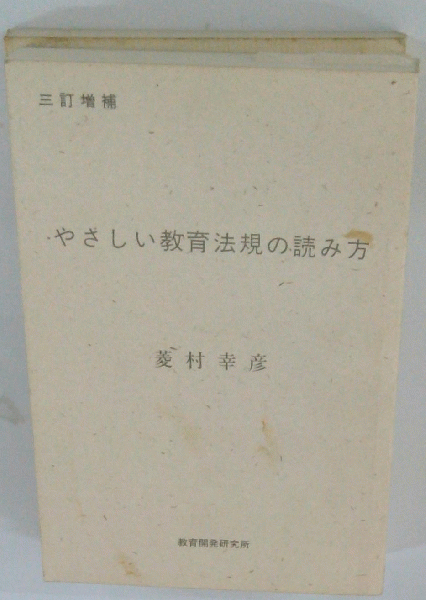 三訂増補
やさしい教育法規の読み方
菱村幸彦
教育開発研究所